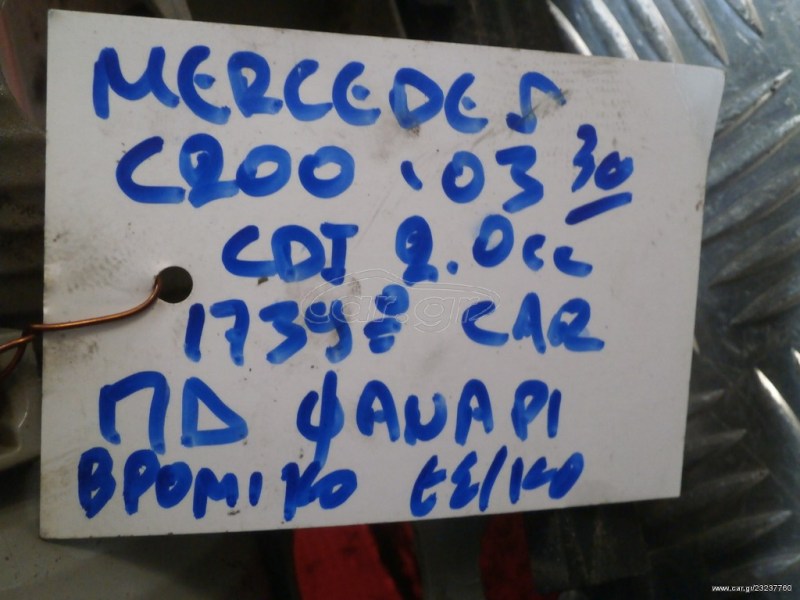 MERCEDES
C200 '03 30
CDI 2.0cc
1739 CAR
ΠΔ ΦΑΝΑΡΙ
ΒΡΟΜΙΚΟ
car.gr
www.car.gr/23237760